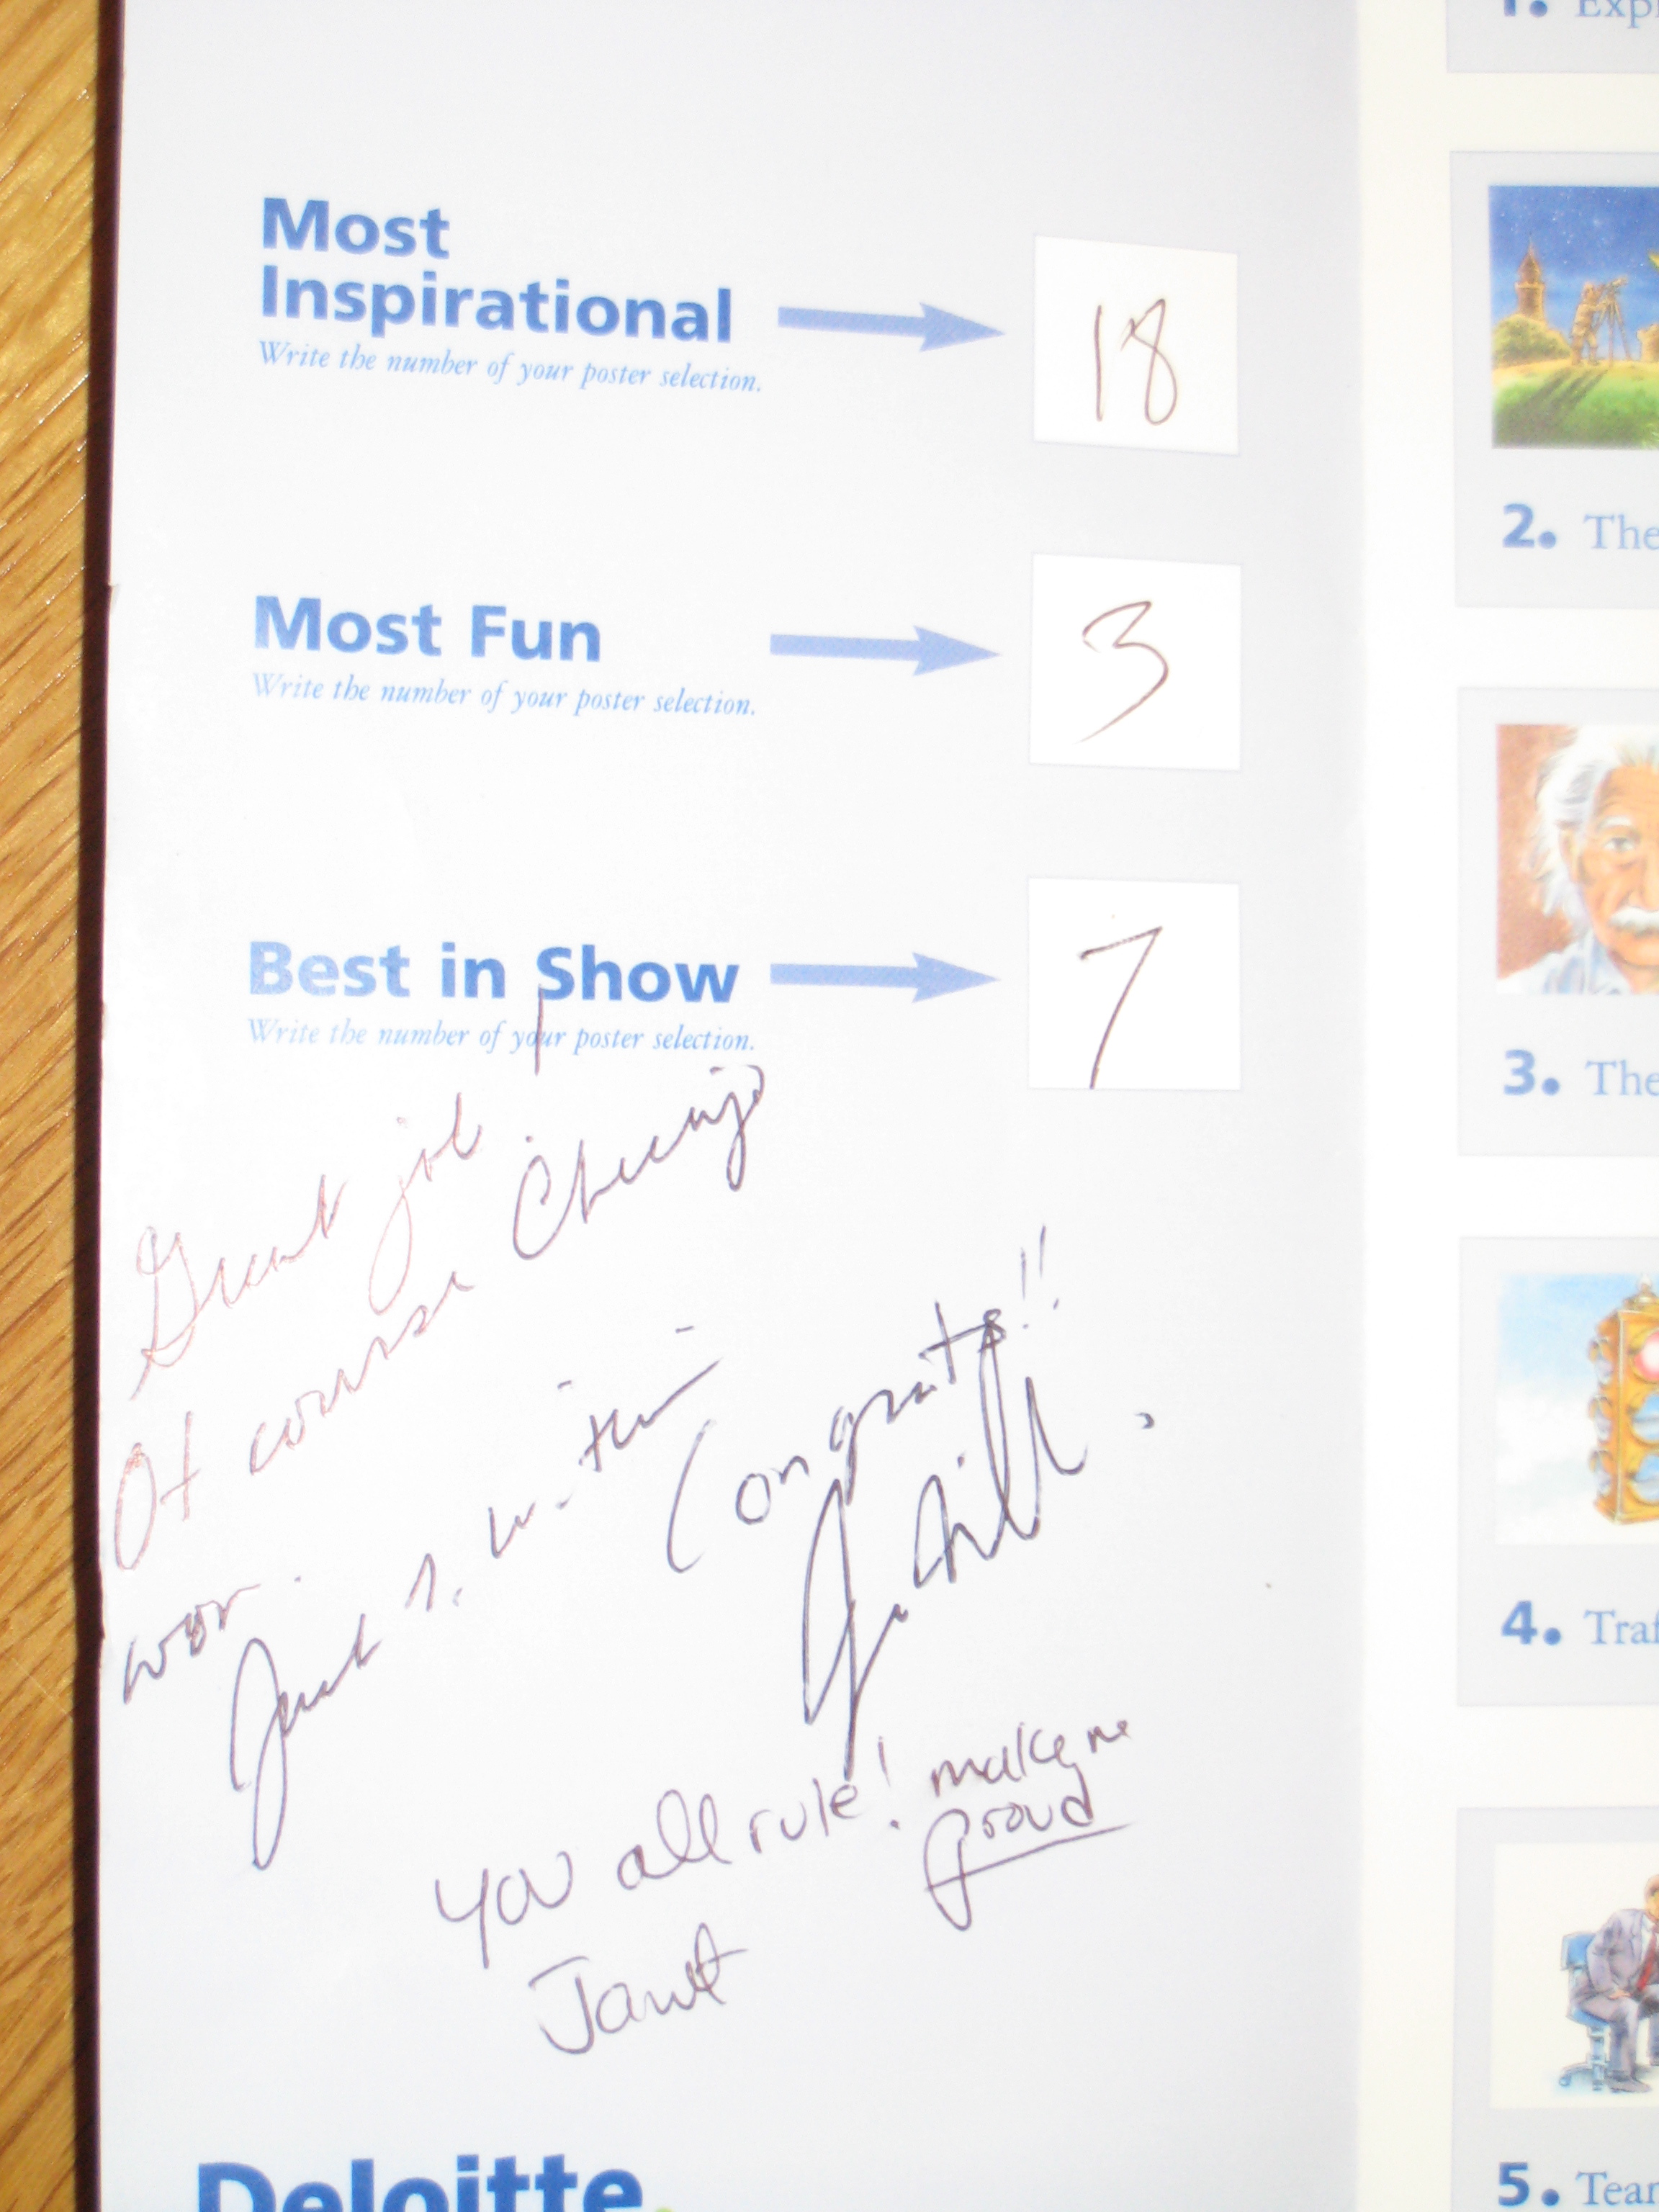 Most
Inspirational
Write the number of your poster selection.
18
Most Fun
Write the number of your poster selection.
3
Best in Show
Write the number of your poster selection.
7
Great job
Of course Chicago
won.
Congrats!!
You all rule! make me
proud
Janet
Deloitte.
1. Expl
2. The
3. The
4. Traf
5. Team